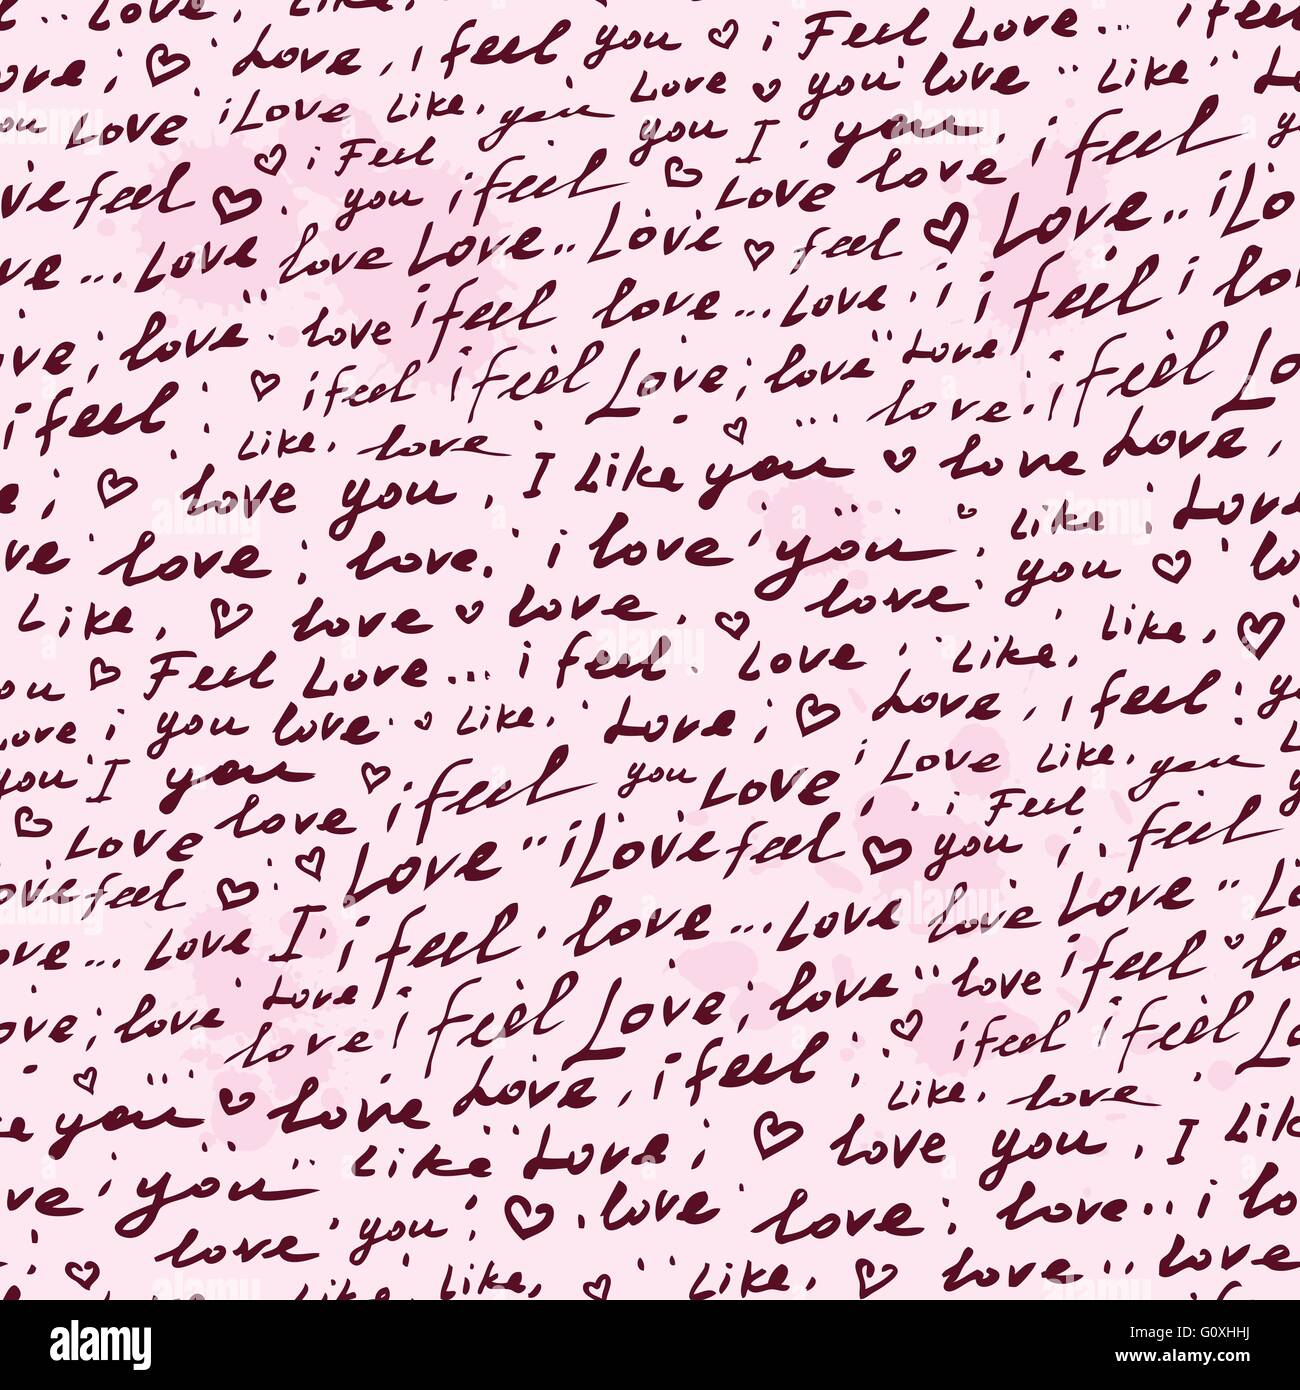 Love, Like,
ove; Love, i feel you i Feel Love... i feel
you Love iLove Like, you Love you love Like
i Feel you I you, i feel
ve feel you i feel Love love
ve... Love love Love.. Love feel Love.. iLo
ve; love love i feel love... Love i i feel i lo
i feel i feel i feel Love; love Love
Like, love love i feel Lo
love you, I Like you love Love,
ve love; love, i love you Like, Love
Like, love love, love you lo
you Feel Love... i feel Love Like, Like,
ove i you love Like, Love; Love, i feel
you I you i feel you Love i Love Like, you
Love love i Feel
ove feel Love iLove feel you i feel
ove... Love I i feel love... Love love Love
ove; love Love i feel Love; love love i feel lo
love i feel i feel Lo
ke you love Love, i feel Like, love
ve you Like Love; love you, I Lik
love you love love; love.. i lo
Like, Like, Like, love.. love
alamy
Image ID: G0XHHJ
www.alamy.com